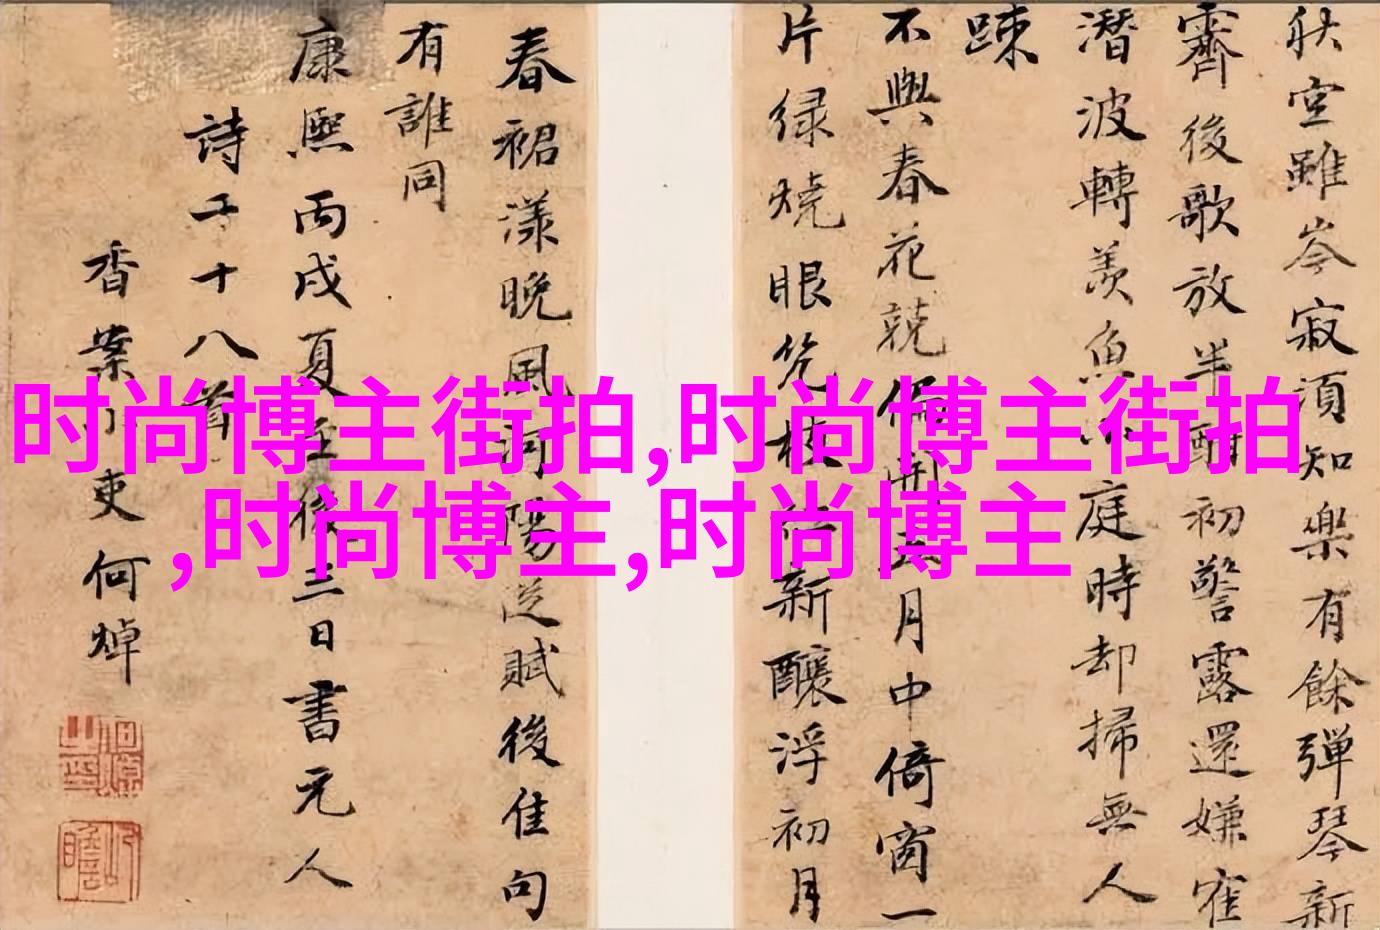 秋空雖岑寂須知樂有餘彈琴新
霽後歌放半酣初警露還嫌
潛波轉羨魚 庭時却掃無人
踈
不與春花競 開五月中倚窗一
片緑燒眼 枝 新釀浮初月
春裙漾晚風河陽 賦後佳句
有誰同
康熙丙戌夏至後三日書元人
詩二十八首
香案小吏何焯
时尚博主街拍,时尚博主街拍
,时尚博主,时尚博主